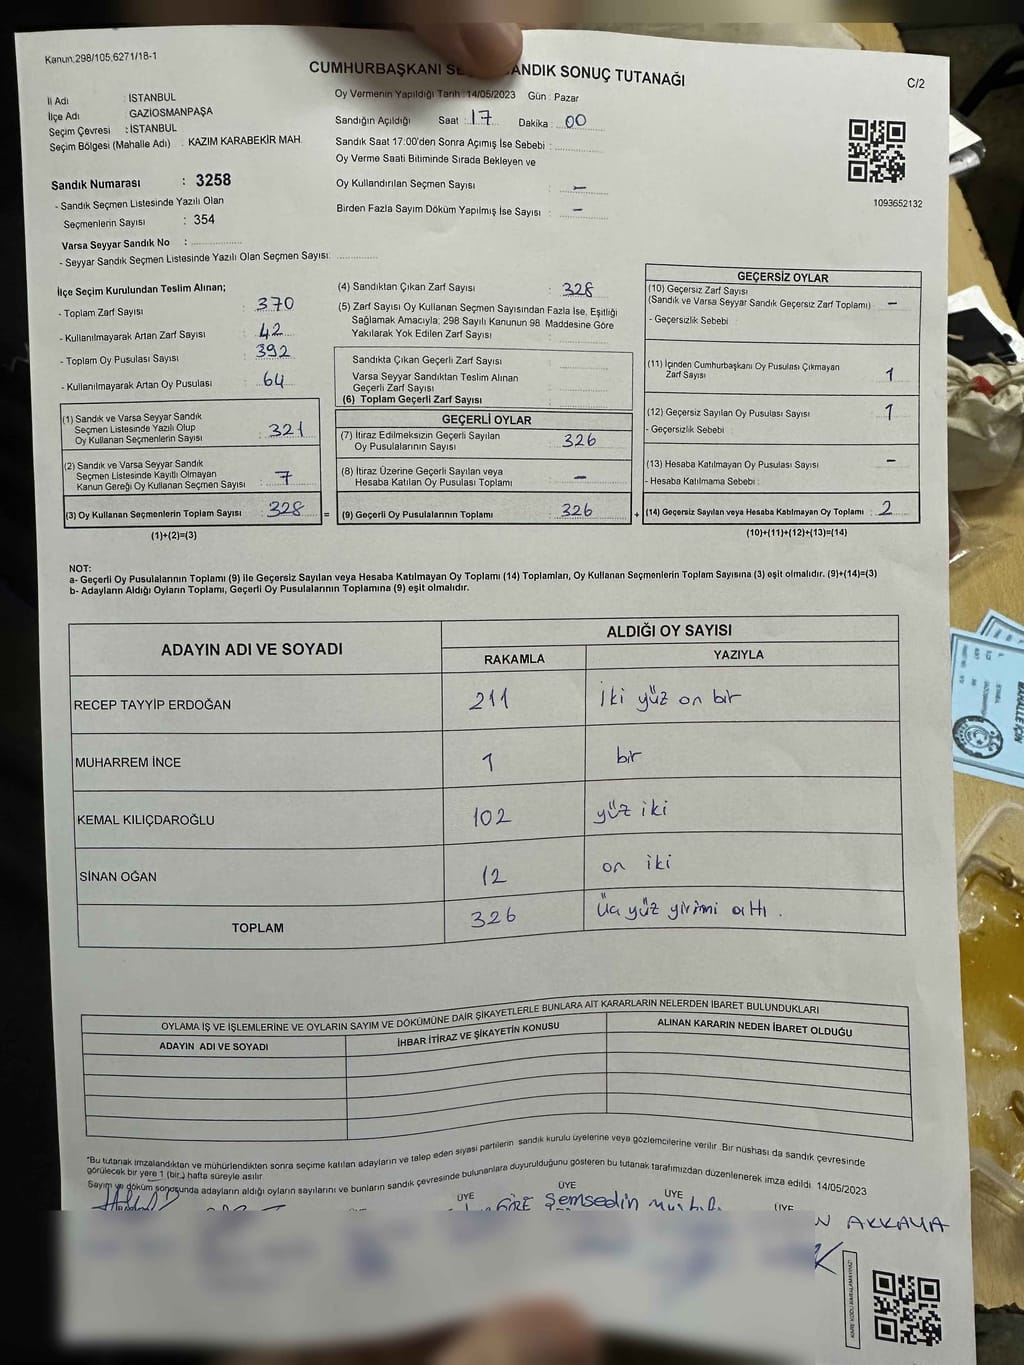 Kanun:298/105,6271/18-1
CUMHURBAŞKANI SE ANDIK SONUÇ TUTANAĞI
C/2
İl Adı : İSTANBUL
İlçe Adı : GAZİOSMANPAŞA
Seçim Çevresi : İSTANBUL
Seçim Bölgesi (Mahalle Adı) : KAZIM KARABEKİR MAH.
Oy Vermenin Yapıldığı Tarih :14/05/2023 Gün : Pazar
Sandığın Açıldığı Saat : 17 Dakika : 00
Sandık Saat 17:00'den Sonra Açımış İse Sebebi :
Oy Verme Saati Bitiminde Sırada Bekleyen ve
Oy Kullandırılan Seçmen Sayısı : -
Birden Fazla Sayım Döküm Yapılmış İse Sayısı : -
1093652132
Sandık Numarası : 3258
- Sandık Seçmen Listesinde Yazılı Olan
Seçmenlerin Sayısı : 354
Varsa Seyyar Sandık No :
- Seyyar Sandık Seçmen Listesinde Yazılı Olan Seçmen Sayısı:
İlçe Seçim Kurulundan Teslim Alınan;
- Toplam Zarf Sayısı : 370
- Kullanılmayarak Artan Zarf Sayısı : 42
- Toplam Oy Pusulası Sayısı : 392
- Kullanılmayarak Artan Oy Pusulası : 64
(1) Sandık ve Varsa Seyyar Sandık
Seçmen Listesinde Yazılı Olup
Oy Kullanan Seçmenlerin Sayısı : 321
(2) Sandık ve Varsa Seyyar Sandık
Seçmen Listesinde Kayıtlı Olmayan
Kanun Gereği Oy Kullanan Seçmen Sayısı : 7
(3) Oy Kullanan Seçmenlerin Toplam Sayısı : 328 =
(1)+(2)=(3)
(4) Sandıktan Çıkan Zarf Sayısı : 328
(5) Zarf Sayısı Oy Kullanan Seçmen Sayısından Fazla İse, Eşitliği
Sağlamak Amacıyla; 298 Sayılı Kanunun 98. Maddesine Göre
Yakılarak Yok Edilen Zarf Sayısı :
Sandıkta Çıkan Geçerli Zarf Sayısı :
Varsa Seyyar Sandıktan Teslim Alınan
Geçerli Zarf Sayısı :
(6) Toplam Geçerli Zarf Sayısı :
GEÇERLİ OYLAR
(7) İtiraz Edilmeksizin Geçerli Sayılan
Oy Pusulalarının Sayısı : 326
(8) İtiraz Üzerine Geçerli Sayılan veya
Hesaba Katılan Oy Pusulası Toplamı : -
(9) Geçerli Oy Pusulalarının Toplamı : 326 +
GEÇERSİZ OYLAR
(10) Geçersiz Zarf Sayısı
(Sandık ve Varsa Seyyar Sandık Geçersiz Zarf Toplamı) : -
- Geçersizlik Sebebi :
(11) İçinden Cumhurbaşkanı Oy Pusulası Çıkmayan
Zarf Sayısı : 1
(12) Geçersiz Sayılan Oy Pusulası Sayısı : 1
- Geçersizlik Sebebi :
(13) Hesaba Katılmayan Oy Pusulası Sayısı : -
- Hesaba Katılmama Sebebi :
(14) Geçersiz Sayılan veya Hesaba Katılmayan Oy Toplamı : 2
(10)+(11)+(12)+(13)=(14)
NOT:
a- Geçerli Oy Pusulalarının Toplamı (9) ile Geçersiz Sayılan veya Hesaba Katılmayan Oy Toplamı (14) Toplamları, Oy Kullanan Seçmenlerin Toplam Sayısına (3) eşit olmalıdır. (9)+(14)=(3)
b- Adayların Aldığı Oyların Toplamı, Geçerli Oy Pusulalarının Toplamına (9) eşit olmalıdır.
ADAYIN ADI VE SOYADI
ALDIĞI OY SAYISI
RAKAMLA YAZIYLA
RECEP TAYYİP ERDOĞAN 211 İki yüz on bir
MUHARREM İNCE 1 bir
KEMAL KILIÇDAROĞLU 102 yüz iki
SİNAN OĞAN 12 on iki
TOPLAM 326 Üç yüz yirmi altı.
OYLAMA İŞ VE İŞLEMLERİNE VE OYLARIN SAYIM VE DÖKÜMÜNE DAİR ŞİKAYETLERLE BUNLARA AİT KARARLARIN NELERDEN İBARET BULUNDUKLARI
ADAYIN ADI VE SOYADI İHBAR İTİRAZ VE ŞİKAYETİN KONUSU ALINAN KARARIN NEDEN İBARET OLDUĞU
*Bu tutanak imzalandıktan ve mühürlendikten sonra seçime katılan adayların ve talep eden siyasi partilerin sandık kurulu üyelerine veya gözlemcilerine verilir. Bir nüshası da sandık çevresinde
görülecek bir yere 1 (bir) hafta süreyle asılır.
Sayım ve döküm sonucunda adayların aldığı oyların sayılarını ve bunların sandık çevresinde bulunanlara duyurulduğunu gösteren bu tutanak tarafımızdan düzenlenerek imza edildi. 14/05/2023
ÜYE ÜYE ÜYE ÜYE
Şemsedin
AKKAYA
MAHALLE İÇİN